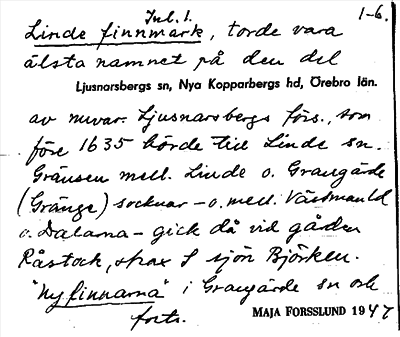 Inl. 1. 1-6.
Linde finnmark, torde vara
älsta namnet på den del
Ljusnarsbergs sn, Nya Kopparbergs hd, Örebro län.
av nuvar. Ljusnarsbergs förs., som
före 1635 hörde till Linde sn.
Gränsen mell. Linde o. Grangärde
(Gränge) socknar - o. mell. Västmanld
o. Dalarna - gick då vid gården
Råstock, strax S sjön Björken.
"Nyfinnarna" i Grangärde sn och
forts. MAJA FORSSLUND 1947